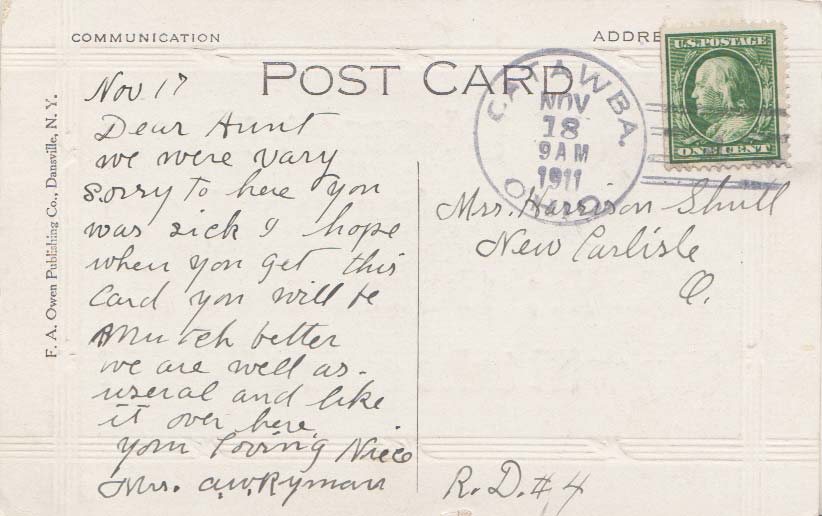 COMMUNICATION
ADDRE
POST CARD
U.S. POSTAGE
ONE CENT
CATAWBA.
NOV
18
9 AM
1911
OHIO
F. A. Owen Publishing Co., Dansville, N. Y.
Nov 17
Dear Aunt
we were vary
sorry to here you
was sick I hope
when you get this
Card you will be
mutch better
we are well as.
useral and like
it over here.
your loving Niece
Mrs. A.W. Ryman
Mrs. Harrison Shull
New Carlisle
O.
R.D. # 4